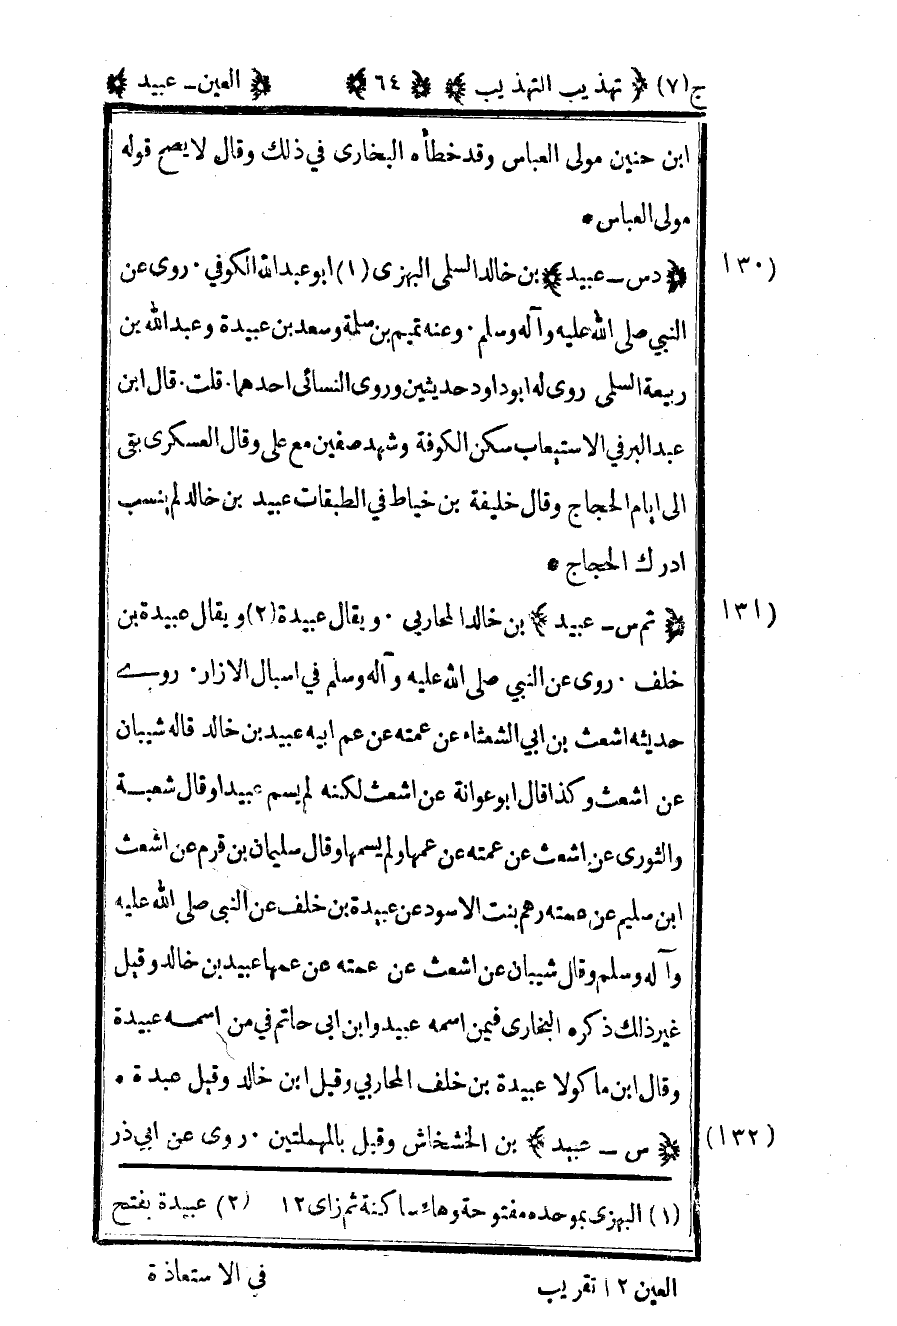 ج(٧) ﴿ تهذيب التهذيب ﴾ ﴿ ٦٤ ﴾ ﴿ العين ـ عبيد ﴾
ابن حنين مولى العباس وقد خطأه البخارى في ذلك وقال لا يصح قوله
مولى العباس *
(١٣٠ ﴿ دس ـ عبيد ﴾ بن خالد السلمى البهزى (١) ابو عبد الله الكوفي . روى عن
النبي صلى الله عليه وآله وسلم . وعنه تميم بن سلمة وسعد بن عبيدة وعبد الله بن
ربيعة السلمى روى له ابوداود حديثين وروى النسائى احدهما . قلت . قال ابن
عبد البر في الاستيعاب سكن الكوفة وشهد صفين مع على وقال العسكرى بقى
الى ايام الحجاج وقال خليفة بن خياط في الطبقات عبيد بن خالد لم ينسب
ادرك الحجاج *
(١٣١ ﴿ تم س ـ عبيد ﴾ بن خالد المحاربي . ويقال عبيدة (٢) ويقال عبيدة بن
خلف . روى عن النبي صلى الله عليه وآله وسلم في اسبال الازار . روے
حديثه اشعث بن ابي الشعثاء عن عمته عن عم ابيه عبيد بن خالد قاله شيبان
عن اشعث وكذا قال ابو عوانة عن اشعث لكنه لم يسم عبيدا وقال شعبة
والثورى عن اشعث عن عمته عن عمها ولم يسمها وقال سليمان بن قرم عن اشعث
ابن سليم عن عمته رهم بنت الاسود عن عبيدة بن خلف عن النبى صلى الله عليه
وآله وسلم وقال شيبان عن اشعث عن عمته عن عمها عبيد بن خالد وقيل
غير ذلك ذكره البخارى فيمن اسمه عبيد وابن ابى حاتم في من اسمه عبيدة
وقال ابن ماكولا عبيدة بن خلف المحاربي وقيل ابن خالد وقيل عبدة .
(١٣٢) ﴿ س ـ عبيد ﴾ بن الخشخاش وقيل بالمهملتين . روى عن ابي ذر
(١) البهزى بموحده مفتوحة وهاء ساكنة ثم زاى ١٢ (٢) عبيدة بفتح
العين ١٢ تقريب
في الاستعاذة